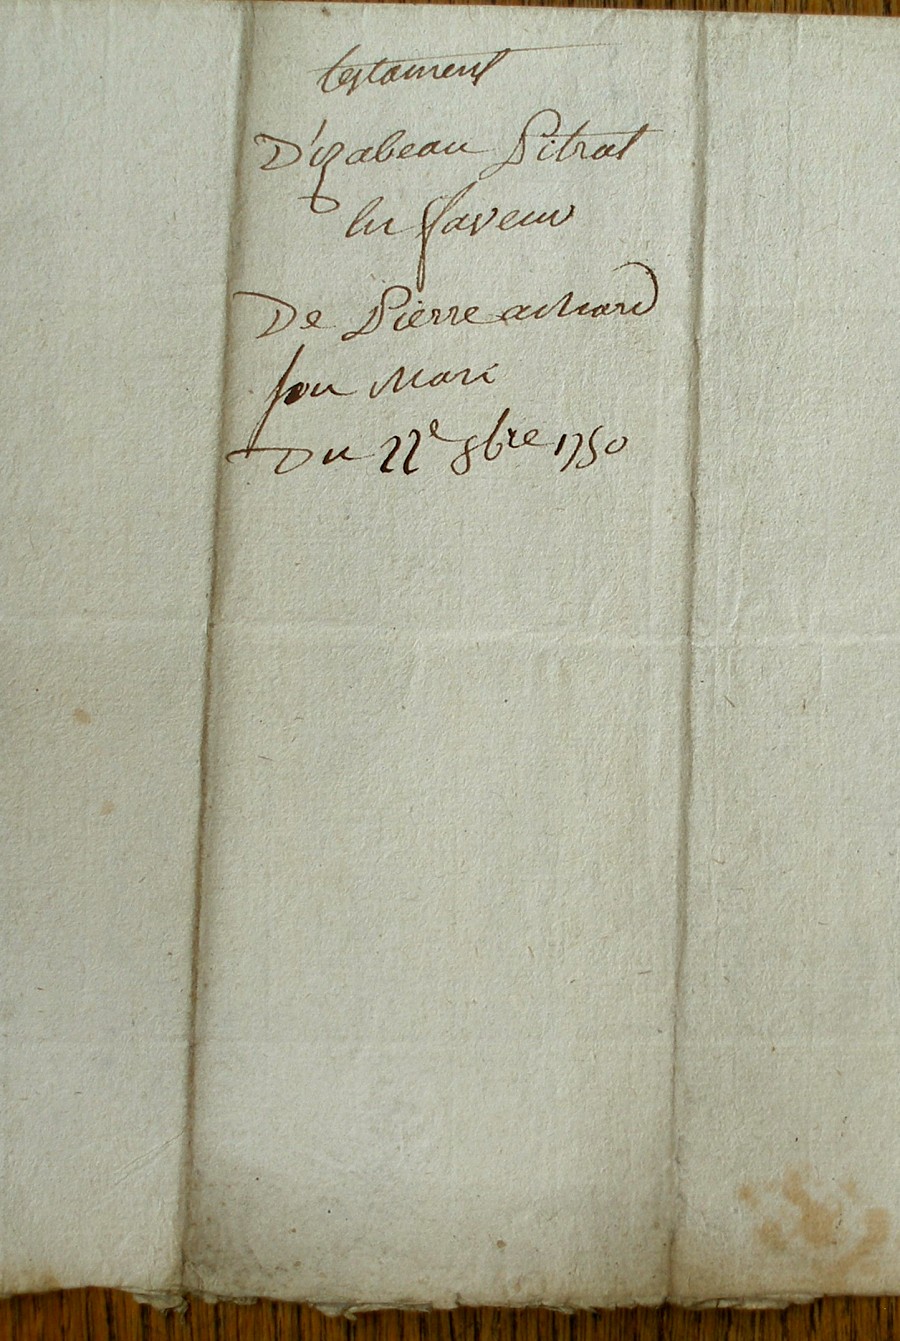 testament
D'izabeau Pitrat
En faveur
De Pierre achard
Son Mari
Du 22e 8bre 1750